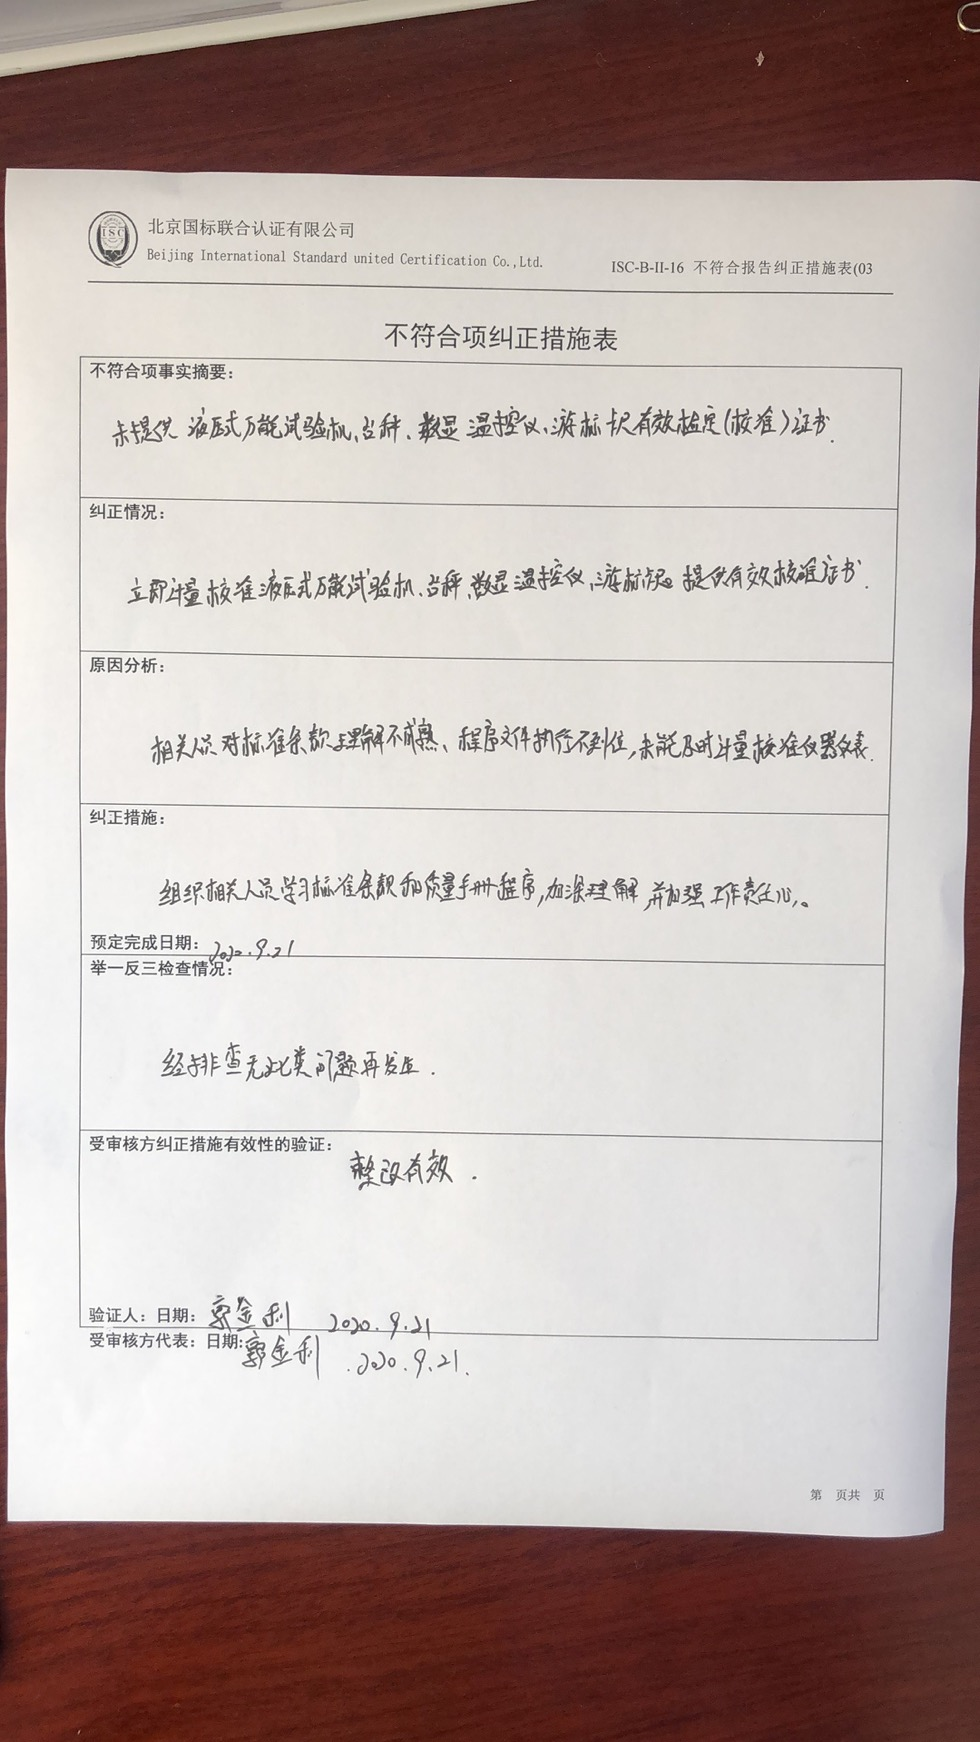 ISC
北京国标联合认证有限公司
Beijing International Standard united Certification Co.,Ltd.
ISC-B-II-16 不符合报告纠正措施表(03
不符合项纠正措施表
不符合项事实摘要：
未提供 液压式万能试验机、台秤、数显温控仪、游标卡尺有效检定(校准)证书.
纠正情况：
立即计量校准液压式万能试验机、台秤、数显温控仪、游标卡尺 提供有效校准证书.
原因分析：
相关人员对标准条款理解不成熟、程序文件执行不到位,未能及时计量校准仪器仪表.
纠正措施：
组织相关人员学习标准条款和质量手册程序,加深理解,并加强工作责任心。
预定完成日期：2020.9.21
举一反三检查情况：
经排查无此类问题再发生.
受审核方纠正措施有效性的验证：
整改有效.
验证人：日期：郭金利 2020.9.21
受审核方代表：日期:郭金利 2020.9.21.
第 页共 页